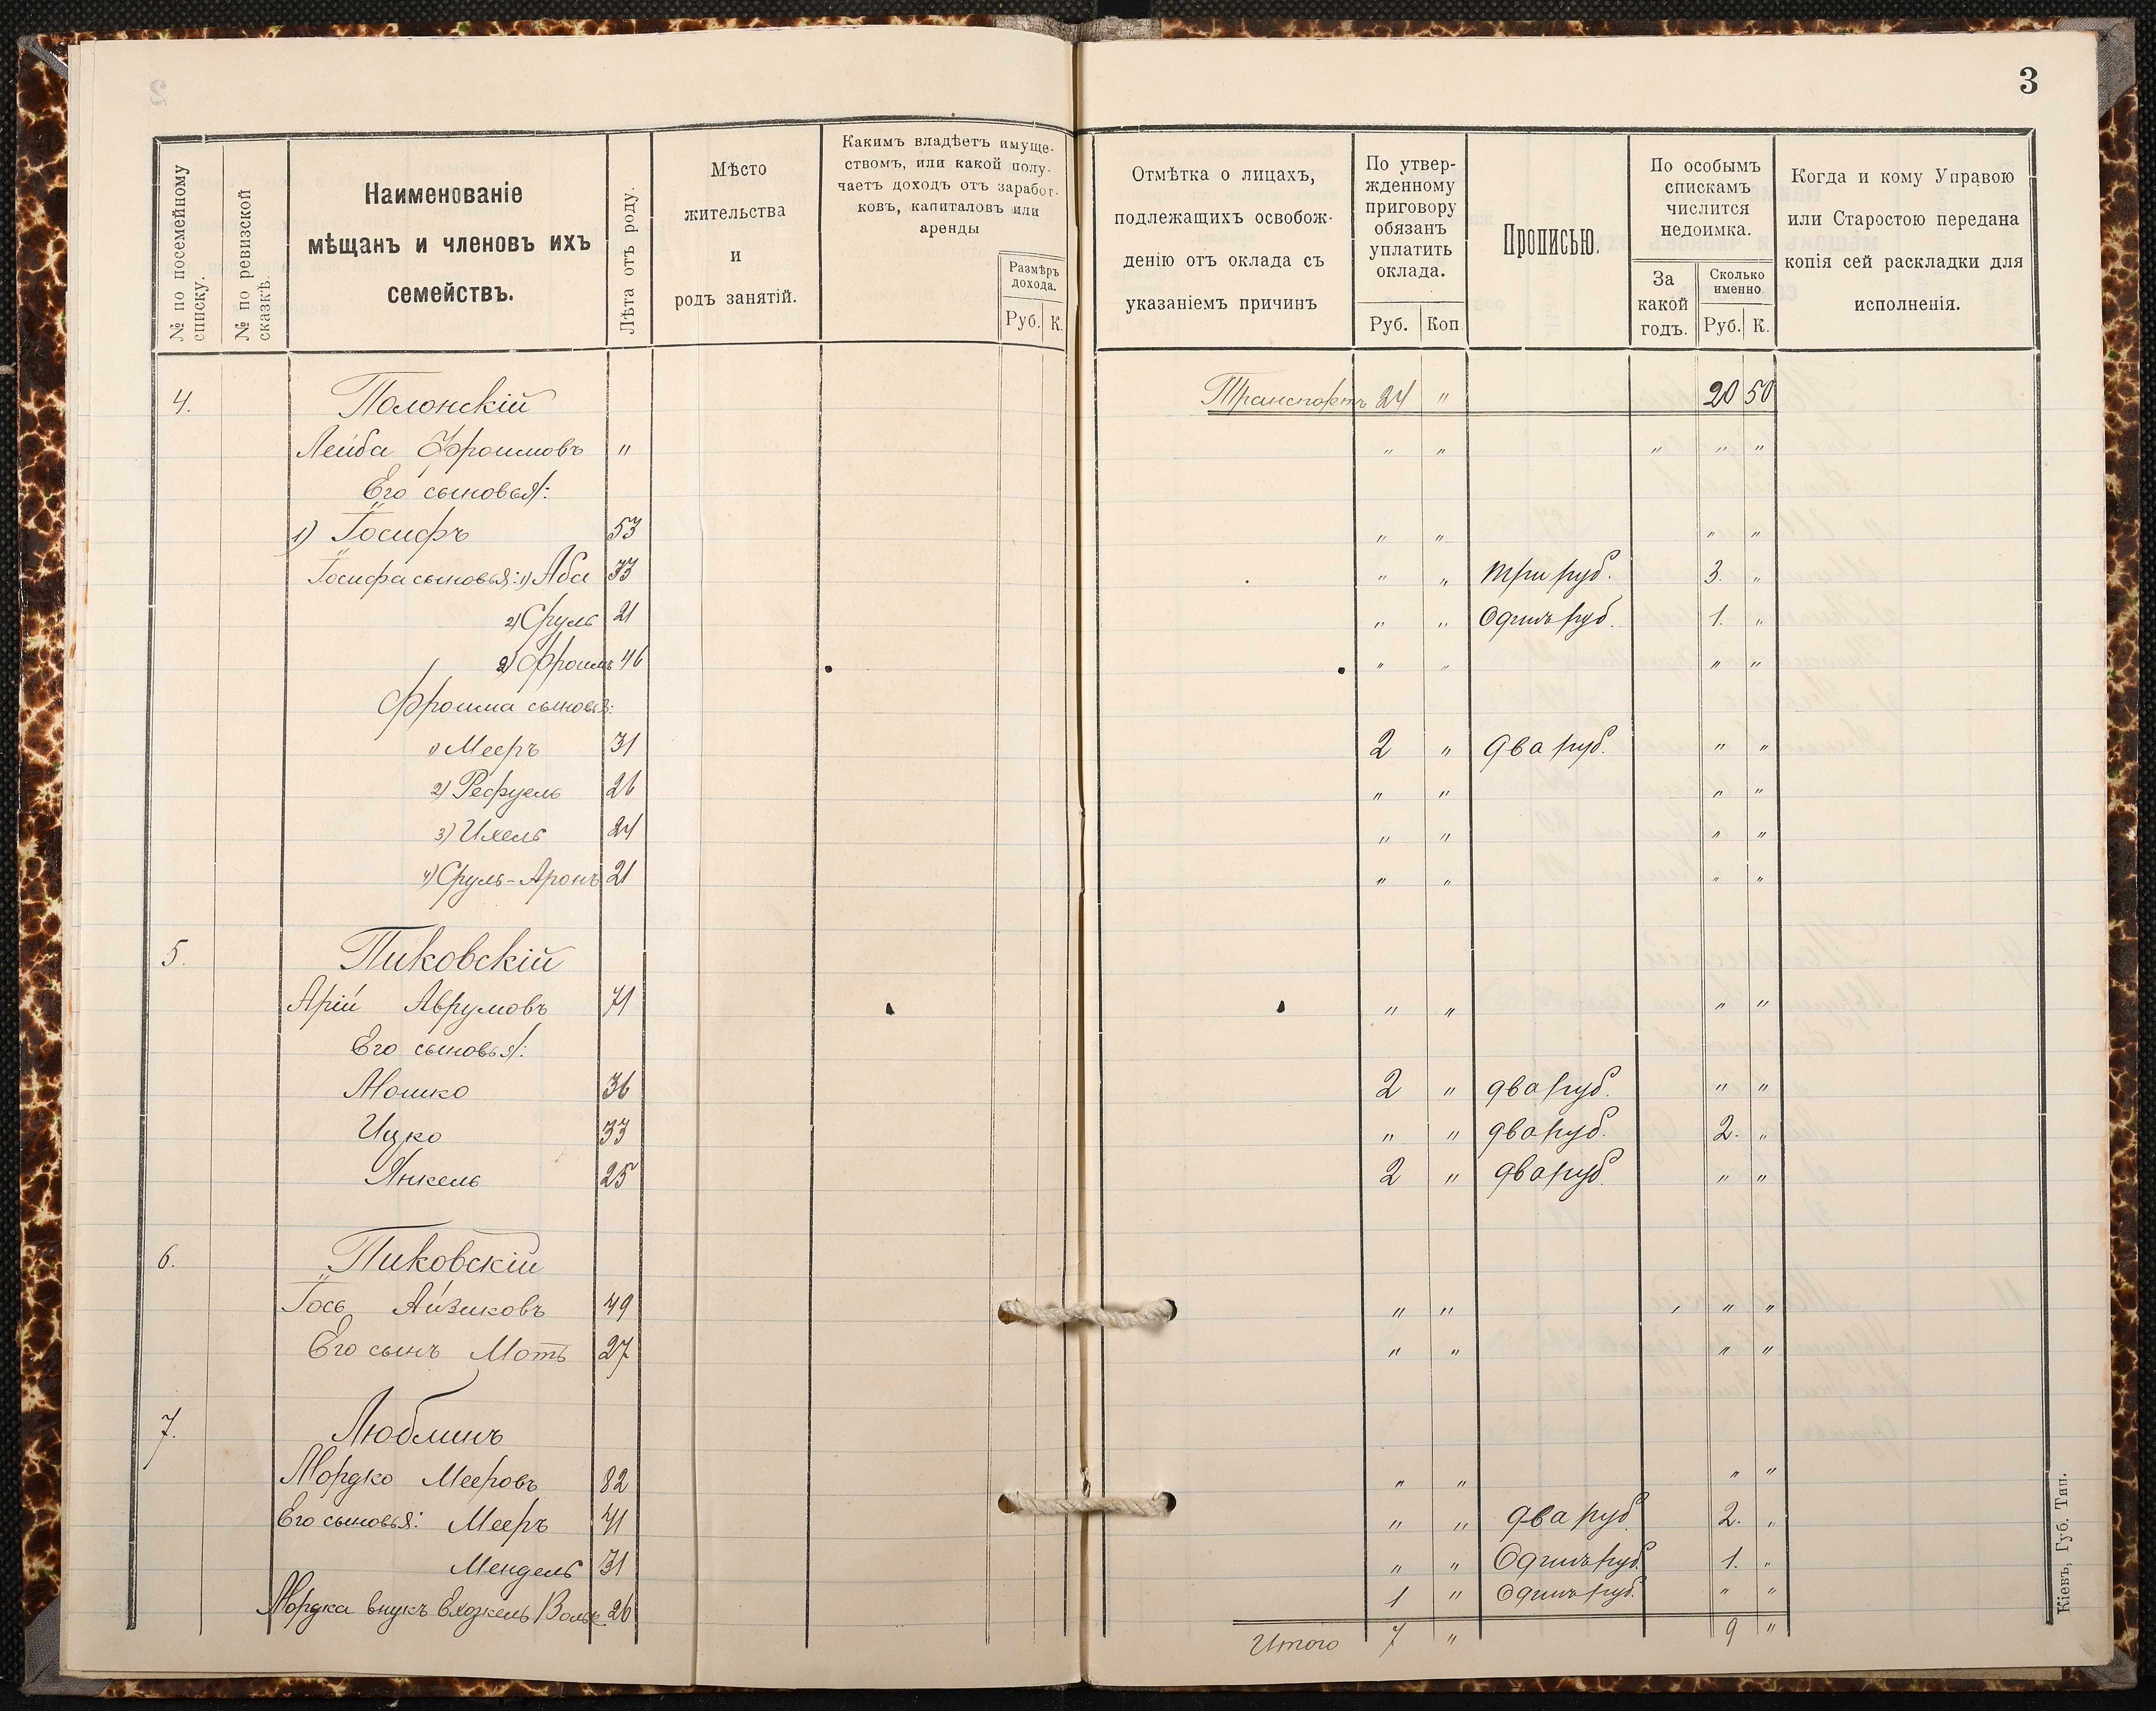 3
№ по посемейному списку.
№ по ревизской сказкѣ.
Наименованіе
мѣщанъ и членовъ ихъ
семействъ.
Лѣта отъ роду.
Мѣсто
жительства
и
родъ занятій.
Какимъ владѣетъ имуще-
ствомъ, или какой полу-
чаетъ доходъ отъ заработ-
ковъ, капиталовъ или
аренды
Размѣръ
дохода.
Руб. К.
Отмѣтка о лицахъ,
подлежащихъ освобож-
денію отъ оклада съ
указаніемъ причинъ
По утвер-
жденному
приговору
обязанъ
уплатить
оклада.
Руб. Коп
Прописью.
По особымъ
спискамъ
числится
недоимка.
За
какой
годъ.
Сколько
именно
Руб. К.
Когда и кому Управою
или Старостою передана
копія сей раскладки для
исполненія.
4. Полонскій Транспортъ 24 " 20 50
Лейба Фроимовъ " " " " " "
Его сыновья:
1) Іосифъ 53 " " " "
Іосифа сыновья: 1) Аба 33 " " три руб. 3. "
2) Сруль 21 " " Одинъ руб. 1. "
2) Фроимъ 46 " " " "
Фроима сыновья:
1) Мееръ 31 2 " два руб. " "
2) Рефуель 26 " " " "
3) Ихель 24 " " " "
4) Сруль-Аронъ 21 " " " "
5. Пиковскій
Арій Аврумовъ 71 " " " "
Его сыновья:
Мошко 36 2 " два руб. " "
Ицко 33 " " два руб. 2. "
Янкель 25 2 " два руб. " "
6. Пиковскій
Іось Айзиковъ 49 " " " "
Его сынъ Моть 27 " " " "
7. Люблинъ
Мордко Мееровъ 82 " " " "
Его сыновья: Мееръ 41 " " два руб. 2. "
Мендель 31 " " Одинъ руб. 1. "
Мордка внукъ Ехозкель Вольк 26 1 " Одинъ руб. " "
Итого 7 " 9 "
Кіевъ, Губ. Тип.